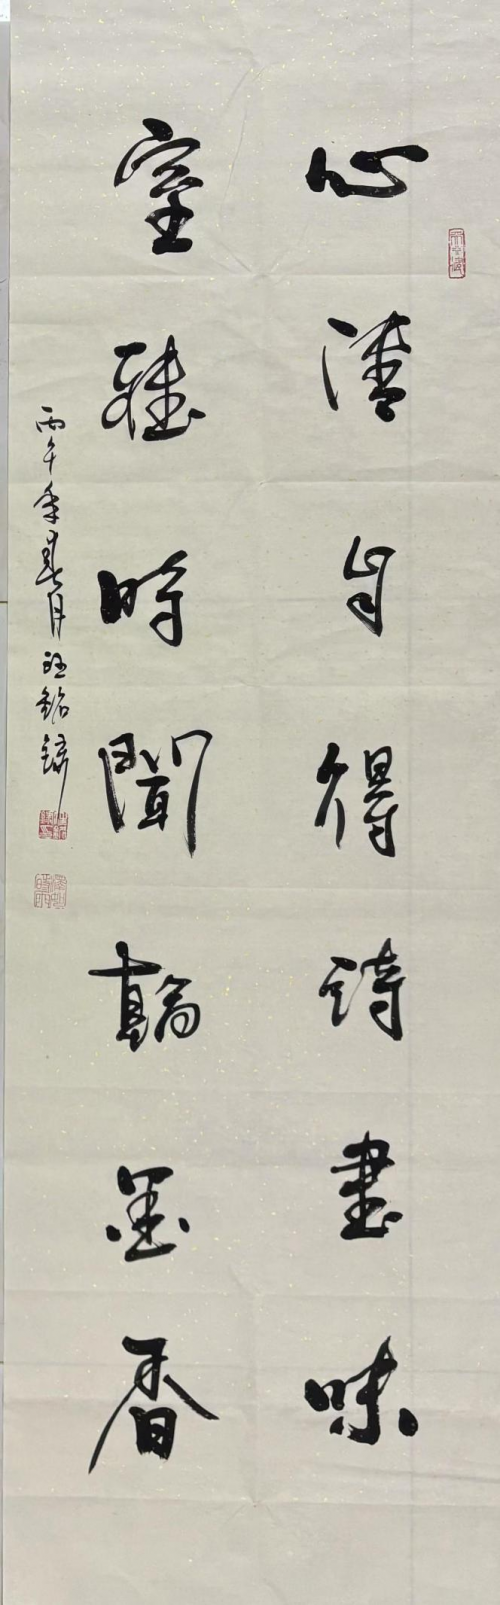 心清自得詩書味
室雅時聞翰墨香
丙午年春月 汪銘錄